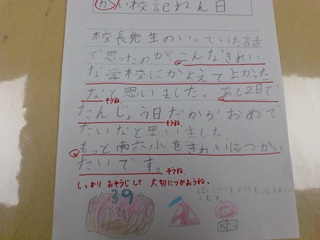 校記ねん日
校長先生のいっていた言話
で思ったのがこんなきれい
な学校にかよえてよかった
なと思いました。あと2日で
そうね。
たんじょう日だからおめで
たいなと思いました
そうね。
もっと南六小をきれいにつかい
たいです。
そうね。
しっかりおそうじして大切につかおうね。